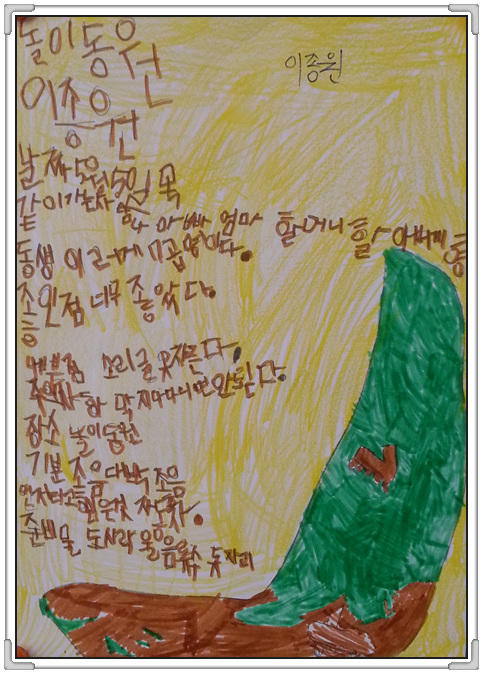 놀이동원
이종원
이종원
날짜 5월 5일 목
같이가는사람 나 아빠 엄마 할머니 할아버지
동생 이렇게 7곱명이다.
좋은점 너무 좋았다.
소리를 못지른다.
주의사항 막 지나다니면 안된다.
장소 놀이동원
기분 조음 대박 조음
준비물 도시락 물 음료수 돗자리